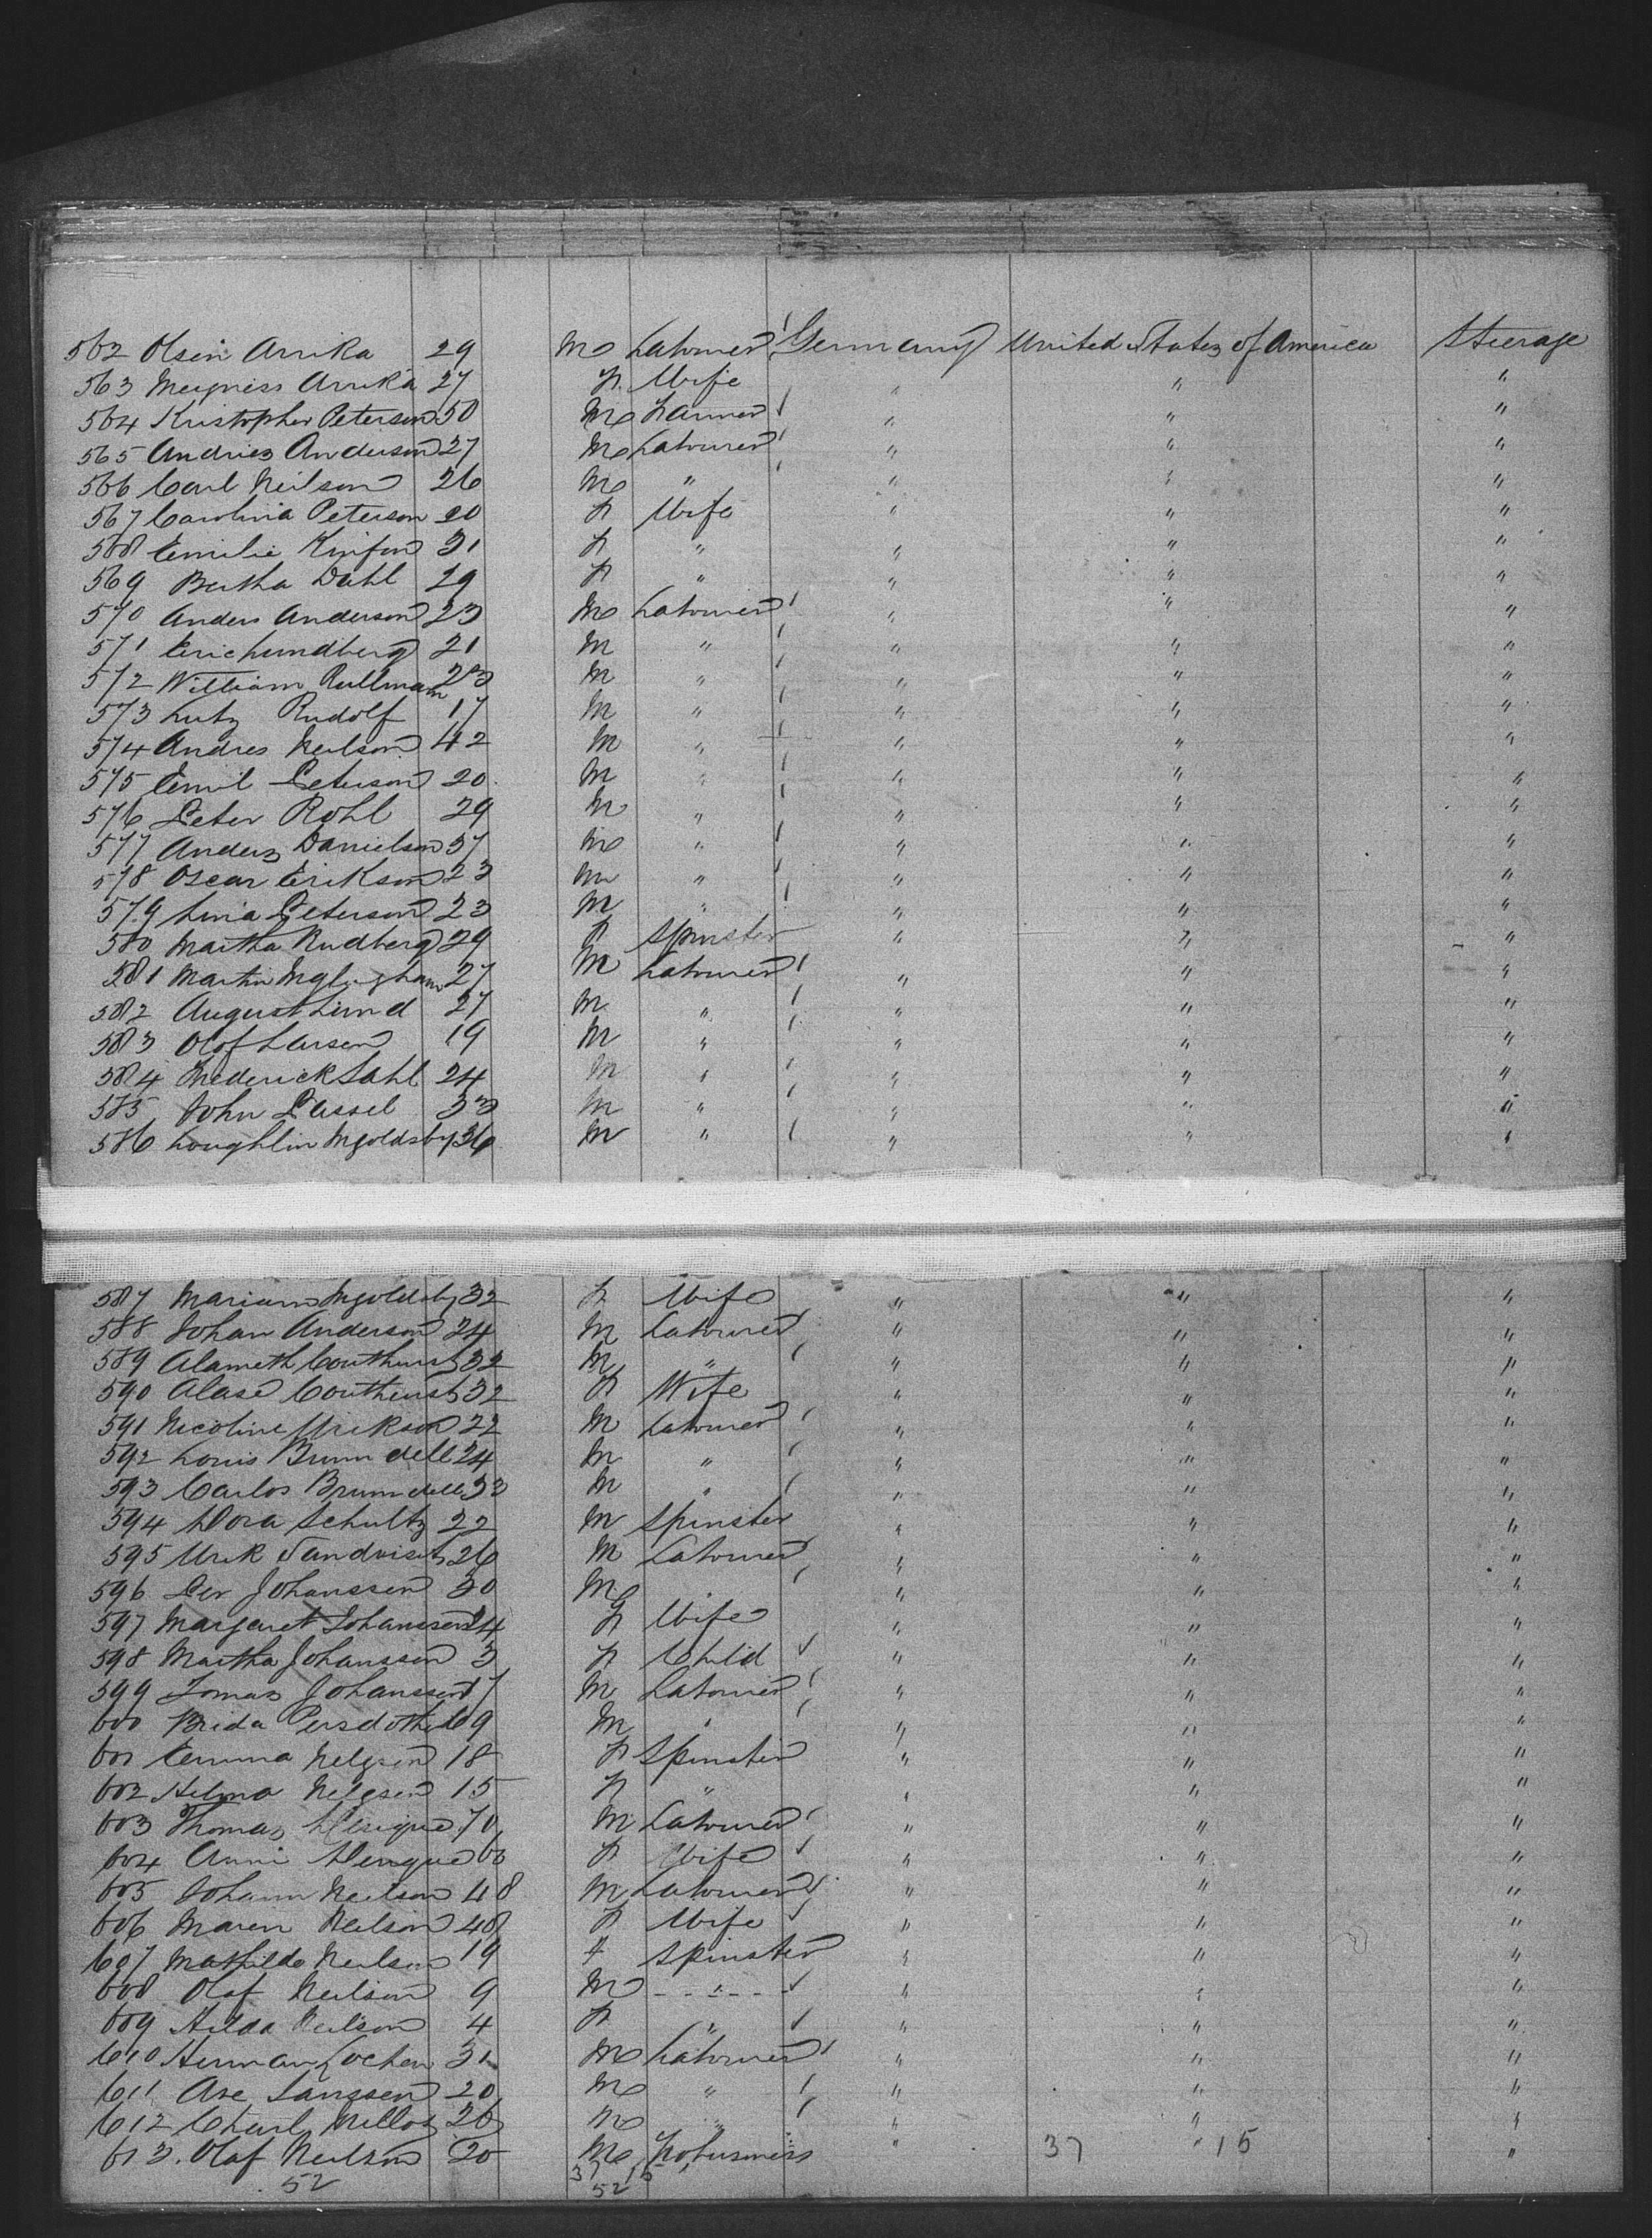 562 Olsen Arrika 29 M Labourer Germany United States of America Steerage
563 Megniss Arrika 27 F. Wife " " "
564 Kristopher Peterson 50 M Farmer " " "
565 Andries Anderson 27 M Labourer " " "
566 Carl Neilson 26 M " " " "
567 Carolina Peterson 20 F Wife " " "
568 Emilie 31 F " " " "
569 Bertha Dahl 29 F " " " "
570 Anders Anderson 23 M Labourer " " "
571 Eric Lundberg 21 M " " " "
572 William Rullmann 23 M " " " "
573 Lutz Rudolf 17 M " " " "
574 Andres Neilson 42 M " " " "
575 Emil Peterson 20 M " " " "
576 Peter Rohl 29 M " " " "
577 Anders Danielson 37 M " " " "
578 Oscar Erikson 23 M " " " "
579 Lina Peterson 23 M " " " "
580 Martha Rudberg 29 F Spinster " " "
581 Martin 27 M Labourer " " "
582 August Lund 27 M " " " "
583 Olof Larsen 19 M " " " "
584 Frederick Sahl 24 M " " " "
585 John Passel 33 M " " " "
586 Loughlin Mgoldsby 36 M " " " "
587 Mariam Mgoldsby 32 F Wife " " "
588 Johan Anderson 24 M Labourer " " "
589 Alameth Couthurst 32 M " " " "
590 Alase Couthurst 32 F Wife " " "
591 Nicoline Urikson 22 M Labourer " " "
592 Louis Brunndell 24 M " " " "
593 Carlos Brunndell 33 M " " " "
594 Dora Schultz 22 M Spinster " " "
595 Urik 26 M Labourer " " "
596 Per Johanssen 30 M " " "
597 Margaret Johanssen 24 F Wife " " "
598 Martha Johanssen 3 F Child " " "
599 Tomas Johanssen 17 M Labourer " " "
600 Brida 69 M " " " "
601 Emma Nelgsen 18 F Spinster " " "
602 Helma Nelgsen 15 F " " " "
603 Thomas 70 M Labourer " " "
604 Anni 60 F Wife " " "
605 Johann Neilson 48 M Labourer " " "
606 Maren Neilson 48 F Wife " " "
607 Mathilde Neilson 19 F Spinster " " "
608 Olaf Neilson 9 M - - " - - " " "
609 Hilda Neilson 4 F " " " "
610 Herman Lochen 31 M Labourer " " "
611 Ase Janssen 20 M " " " "
612 Charl Nelloz 26 M " " " "
613. Olaf Neilson 20 M No business " 37 " 15 "
52 37 15
52